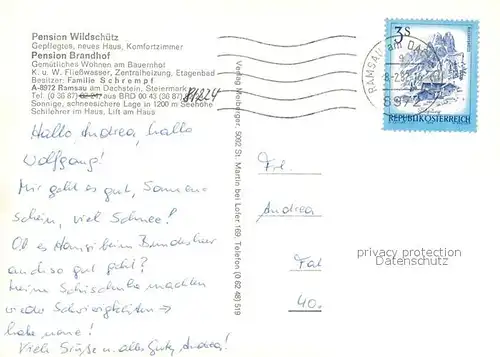 Pension Wildschütz
Gepflegtes, neues Haus, Komfortzimmer
Pension Brandhof
Gemütliches Wohnen am Bauernhof
K. u. W. Fließwasser, Zentralheizung, Etagenbad
Besitzer: Familie Schrempf
A-8972 Ramsau am Dachstein, Steiermark
Tel. (0 36 87) aus BRD 00 43 (38 87)
Sonnige, schneesichere Lage in 1200 m Seehöhe
Schilehrer im Haus, Lift am Haus
81824
Hallo, Andrea, hallo
Wolfgang!
Mir geht es gut, Sonnen-
schein, viel Schnee!
Ob es Hansi beim Bundesheer
auch so gut geht?
Meine Schischuhe machten
wieder Schwierigkeiten →
habe neue!
Viele Grüße u. alles Gute, Andrea!
Verlag Neuberger, 5092 St. Martin bei Lofer 169, Telefon (0 82 48) 519
3S
REPUBLIK ÖSTERREICH
RAMSAU am DA
8972
Frl.
Andrea
Fat
40.
privacy protection
Datenschutz